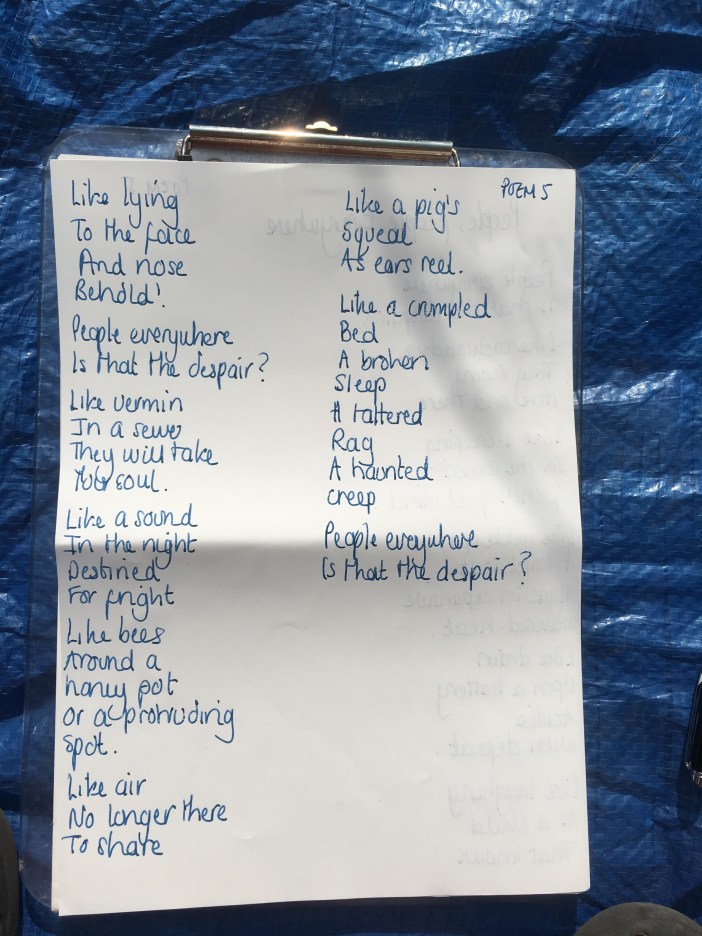 POEM 5
Like lying
To the face
And nose
Behold!
People everywhere
Is that the despair?
Like vermin
In a sewer
They will take
Your soul.
Like a sound
In the night
Destined
For fright
Like bees
Around a
honey pot
or a protruding
spot.
Like air
No longer there
To share
Like a pig's
Squeal
As ears reel.
Like a crumpled
Bed
A broken
Sleep
A tattered
Rag
A haunted
creep
People everywhere
Is that the despair?